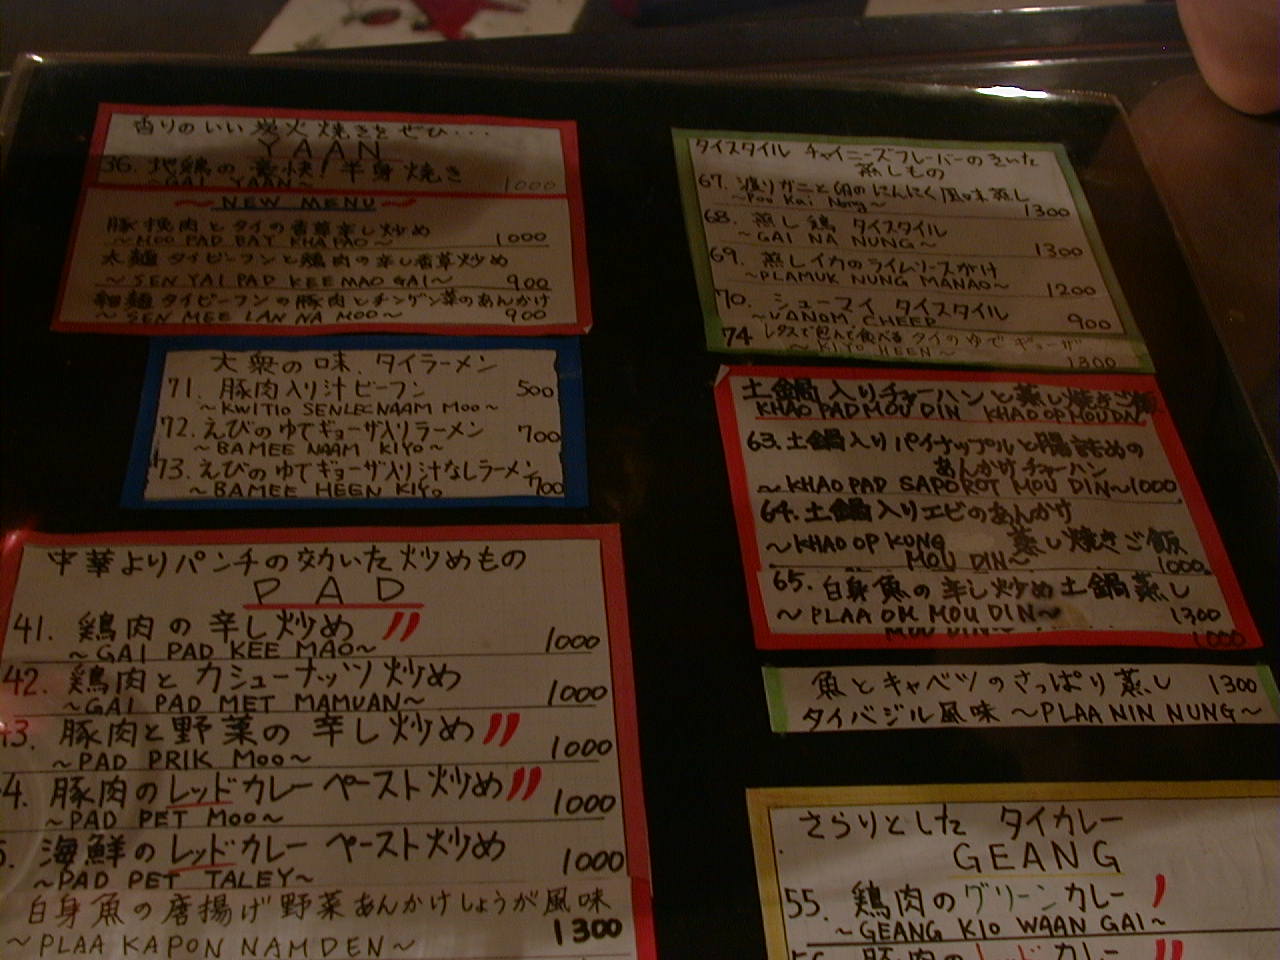 香りのいい炭火焼きをぜひ・・・
YAAN
36. 地鶏の豪快!半身焼き
~GAI YAAN~ 1000
~NEW MENU~
豚挽肉とタイの香草辛し炒め
~MOO PAD BAY KHAPAO~ 1000
太麺タイビーフンと鶏肉の辛し香草炒め
~SEN YAI PAD KEE MAO GAI~ 900
細麺タイビーフンの豚肉とチンゲン菜のあんかけ
~SEN MEE LAN NA MOO~ 900
大衆の味、タイラーメン
71. 豚肉入り汁ビーフン 500
~KWITIO SENLEC NAAM MOO~
72. えびのゆでギョーザ入りラーメン 700
~BAMEE NAAM KIYO~
73. えびのゆでギョーザ入り汁なしラーメン 700
~BAMEE HEEN KIYO~
中華よりパンチの効いた炒めもの
PAD
41. 鶏肉の辛し炒め 1000
~GAI PAD KEE MAO~
42. 鶏肉とカシューナッツ炒め 1000
~GAI PAD MET MAMUAN~
43. 豚肉と野菜の辛し炒め 1000
~PAD PRIK MOO~
4. 豚肉のレッドカレーペースト炒め 1000
~PAD PET MOO~
海鮮のレッドカレーペースト炒め 1000
~PAD PET TALEY~
白身魚の唐揚げ野菜あんかけしょうが風味
~PLAA KAPON NAMDEN~ 1300
タイスタイル チャイニーズフレーバーのきいた
蒸しもの
67. 渡りガニと卵のにんにく風味蒸し
~Poo Kai Nong~ 1300
68. 蒸し鶏 タイスタイル
~GAI NA NUNG~ 1300
69. 蒸しイカのライムソースがけ
~PLAMUK NUNG MANAO~ 1200
70. シューマイ タイスタイル
~VANOM CHEEP 900
74 レタスで包んで食べるタイのゆでギョーザ
~KIYO HEEN~ 1300
土鍋入りチャーハンと蒸し焼きご飯
KHAO PAD MOU DIN KHAO OP MOU DIN
63. 土鍋入りパイナップルと腸詰めの
あんかけチャーハン
~KHAO PAD SAPOROT MOU DIN~1000
64. 土鍋入りエビのあんかけ
蒸し焼きご飯
~KHAO OP KUNG MOU DIN~ 1000
65. 白身魚の辛し炒め土鍋蒸し
~PLAA OK MOU DIN~ 1300
1000
魚とキャベツのさっぱり蒸し 1300
タイバジル風味 ~PLAA NIN NUNG~
さらりとした タイカレー
GEANG
55. 鶏肉のグリーンカレー
~GEANG KIO WAAN GAI~
豚肉のレッドカレー